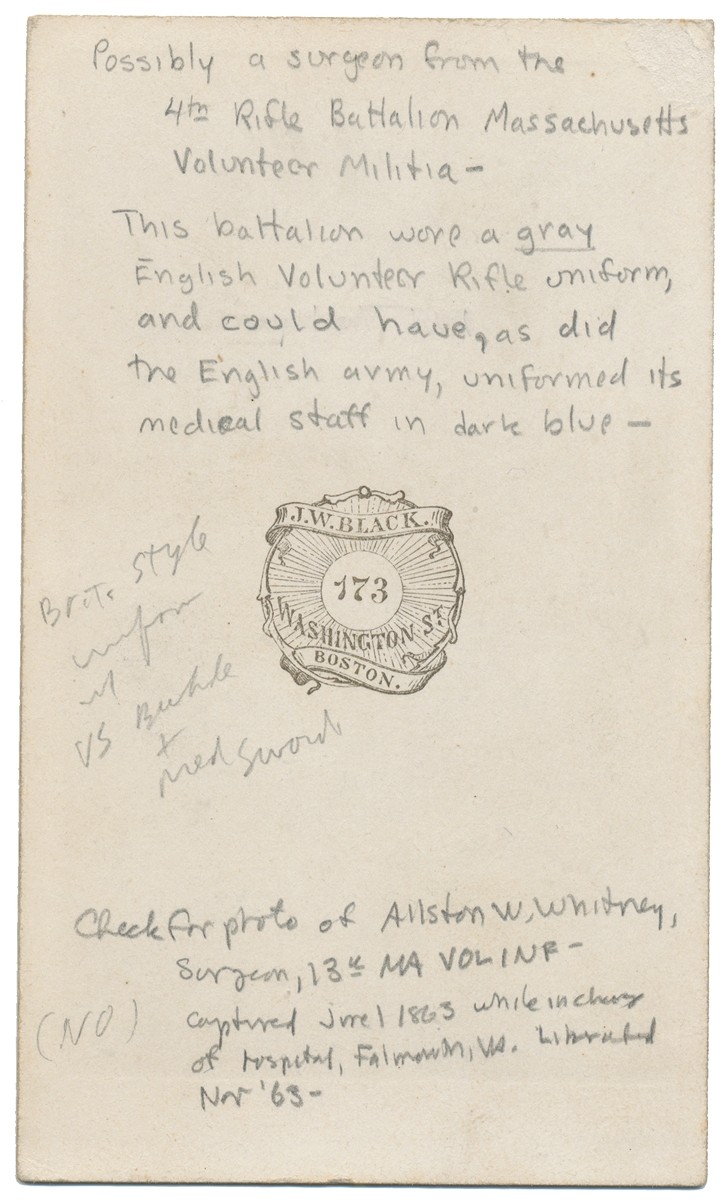 Possibly a surgeon from the
4th Rifle Battalion Massachusetts
Volunteer Militia -
This battalion wore a gray
English Volunteer Rifle uniform,
and could have, as did
the English army, uniformed its
medical staff in dark blue -
J.W. BLACK.
173
WASHINGTON ST.
BOSTON.
Brit. Style
uniform
w/
VS Buckle
+
med sword
Check for photo of Allston W. Whitney,
Surgeon, 13th MA VOL INF -
(NO)
captured June 1 1863 while in charge
of hospital, Falmouth, VA. Liberated
Nov '63 -